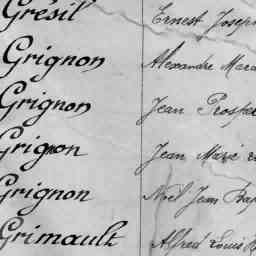 Grésil Ernest Joseph
Grignon Alexandre
Grignon Jean Prosper
Grignon Jean Marie
Grignon Noël Jean Bap
Grimault Alfred Louis